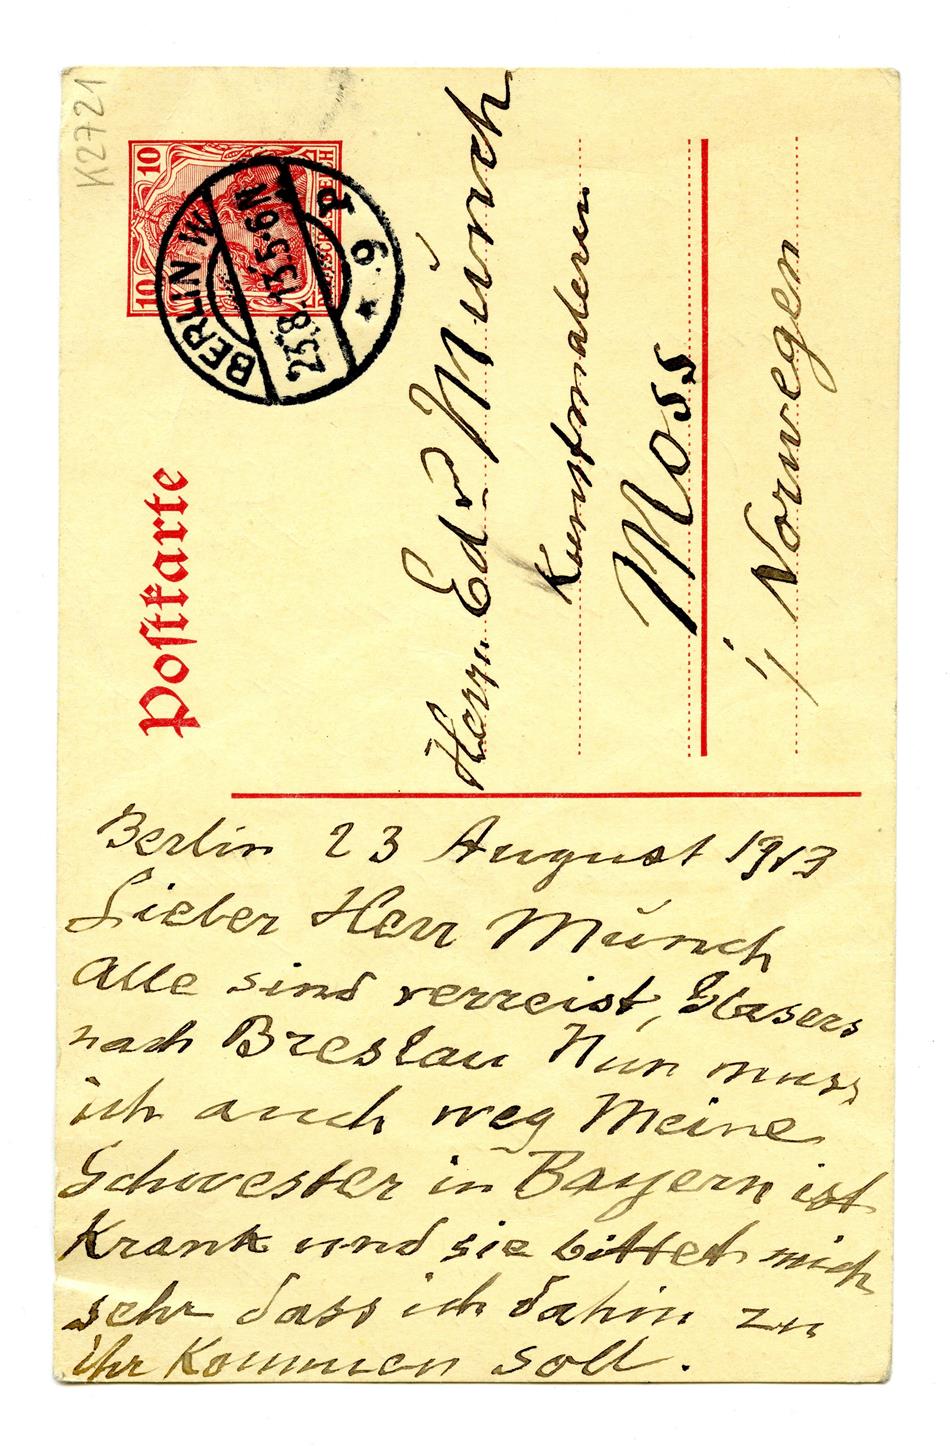 K2721
10
10
DEUTSCHES REICH
BERLIN W
23.8.13.5-6N
P 9
Postkarte
Herrn Edv Münch
Kunstmalern
Moss
i/ Norwegen
Berlin 23 August 1913
Lieber Herr Münch
Alle sind verreist, Glasers
nach Breslau Nun muss
ich auch weg Meine
Schwester in Bayern ist
Krank und sie bittet mich
sehr dass ich dahin zu
ihr Kommen soll.